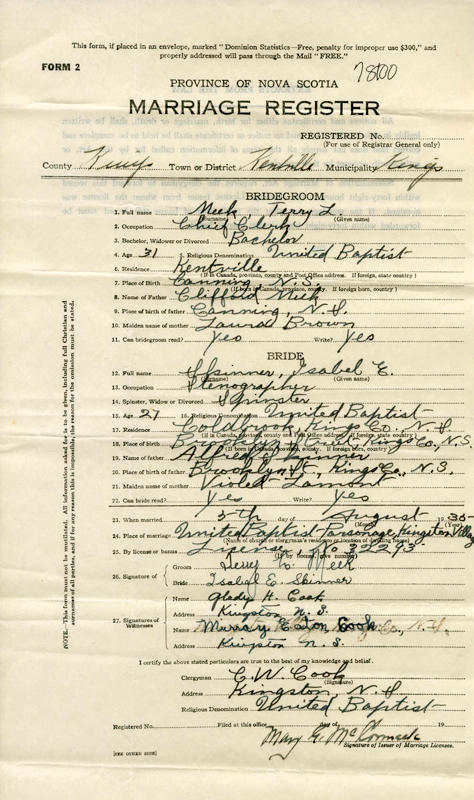 This form, if placed in an envelope, marked "Dominion Statistics—Free, penalty for improper use $300," and
properly addressed will pass through the Mail "FREE."
FORM 2
78100
PROVINCE OF NOVA SCOTIA
MARRIAGE REGISTER
REGISTERED No.
(For use of Registrar General only)
County Kings Town or District Kentville Municipality Kings
BRIDEGROOM
1. Full name Meek Terry L.
(Surname) (Given name)
2. Occupation Chief Clerk
3. Bachelor, Widower or Divorced Bachelor
4. Age 31 5. Religious Denomination United Baptist
6. Residence Kentville
(If in Canada, province, county and Post Office address. If foreign, state country)
7. Place of Birth Canning N.S.
(If born in Canada, province, county. If foreign born, country)
8. Name of Father Clifford Meek
9. Place of birth of Father Canning, N.S.
10. Maiden name of mother Laura Brown
11. Can bridegroom read? Yes Write? Yes
BRIDE
12. Full name Skinner, Isabel E.
(Surname) (Given name)
13. Occupation Stenographer
14. Spinster, Widow or Divorced Spinster
15. Age 27 16. Religious Denomination United Baptist
17. Residence Coldbrook, Kings Co., N.S.
(If in Canada, province, county and Post Office address. If foreign, state country)
18. Place of birth Brooklyn Kings Co, N.S.
(If born in Canada, province, county. If foreign born, country)
19. Name of father Alfred Skinner
20. Place of birth of father Brooklyn St., Kings Co., N.S.
21. Maiden name of mother Violet Lamont
22. Can bride read? Yes Write? Yes
23. When married 5th day of August 1935
(Month)
24. Place of marriage United Baptist Parsonage, Kingston Village
25. By license or banns License No 32293
26. Signature of Groom Terry L. Meek
Bride Isabel E. Skinner
27. Signatures of Witnesses
Name Gladys H. Cook
Address Kingston N.S.
Name Murray Eaton Cook
Address Kingston N.S.
I certify the above stated particulars are true to the best of my knowledge and belief.
Clergyman C.W. Cook
(Signature)
Address Kingston, N.S.
Religious Denomination United Baptist
Registered No. Filed at this office day of 19
Mary E. McCormick
Signature of Issuer of Marriage Licenses.
[SEE OTHER SIDE]
NOTE.—This form must not be mutilated. All information asked for is to be given, including full Christian and
surnames of all parties, and if for any reason this is impossible, the reason for the omission must be stated.